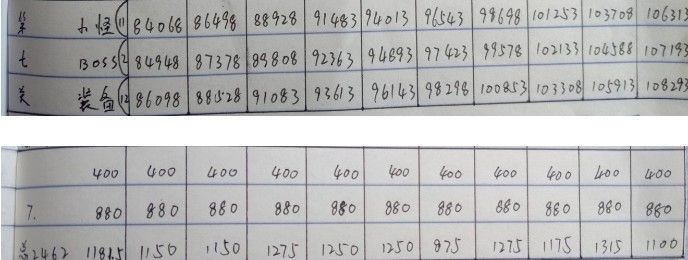 第 小怪(11 84068 86498 88928 91483 94013 96543 98698 101253 103708 106313
七 BOSS(2 84948 87378 89808 92363 94893 97423 99578 102133 104588 107193
关 装备(12 86098 88528 91083 93613 96143 98298 100853 103308 105913 108293
400 400 400 400 400 400 400 400 400 400 400
7. 880 880 880 880 880 880 880 880 880 880 880
总2462 1181.5 1150 1150 1275 1250 1250 875 1275 1175 1315 1100